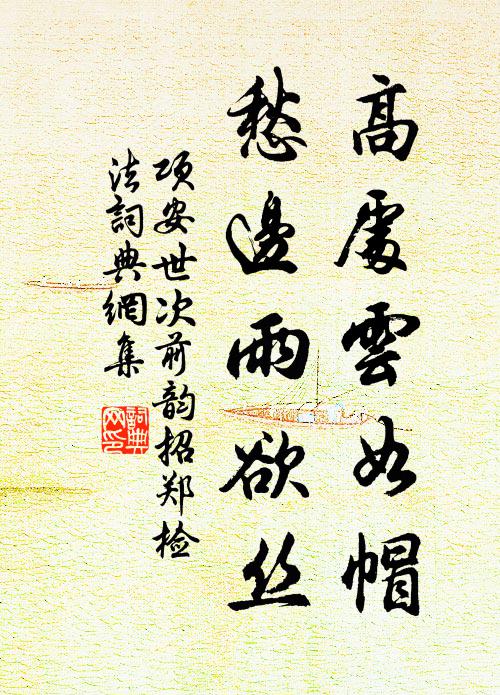 高處雲如帽
愁邊雨欲丝
项安世次前韵招郑检
法詞典網集
詞典网印